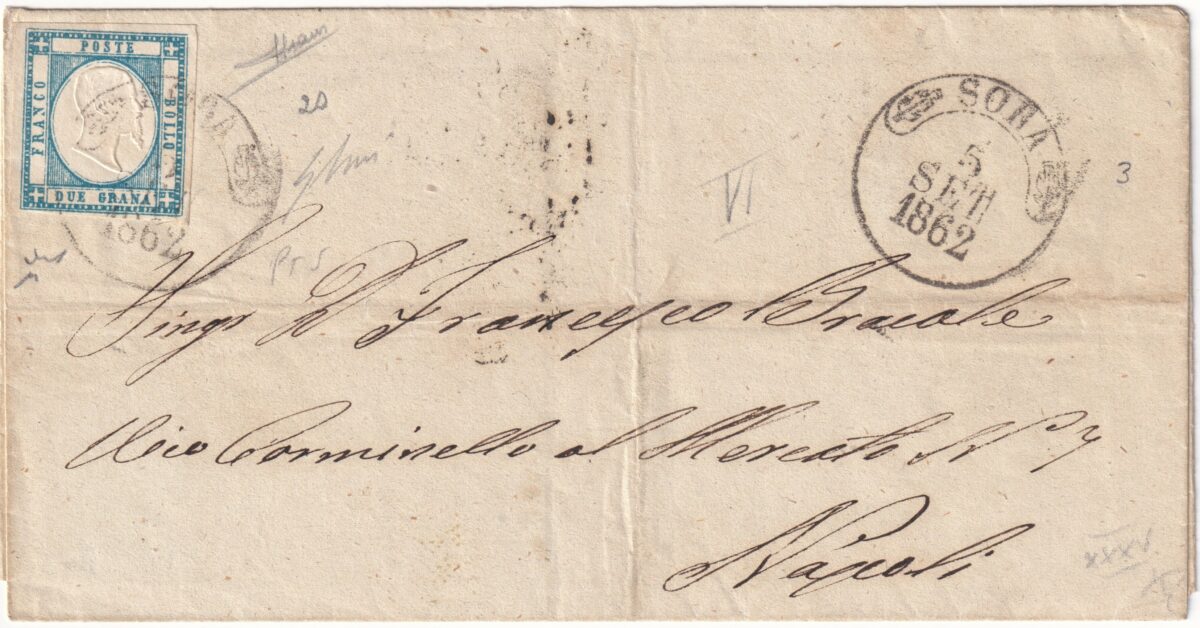 POSTE
FRANCO
BOLLO
DUE GRANA
SORA
1862
20
VI
SORA
5
SET
1862
3
Sing.r D. Francesco Bracale
Vico Carminello al Mercato N° 7
Napoli
XXXV